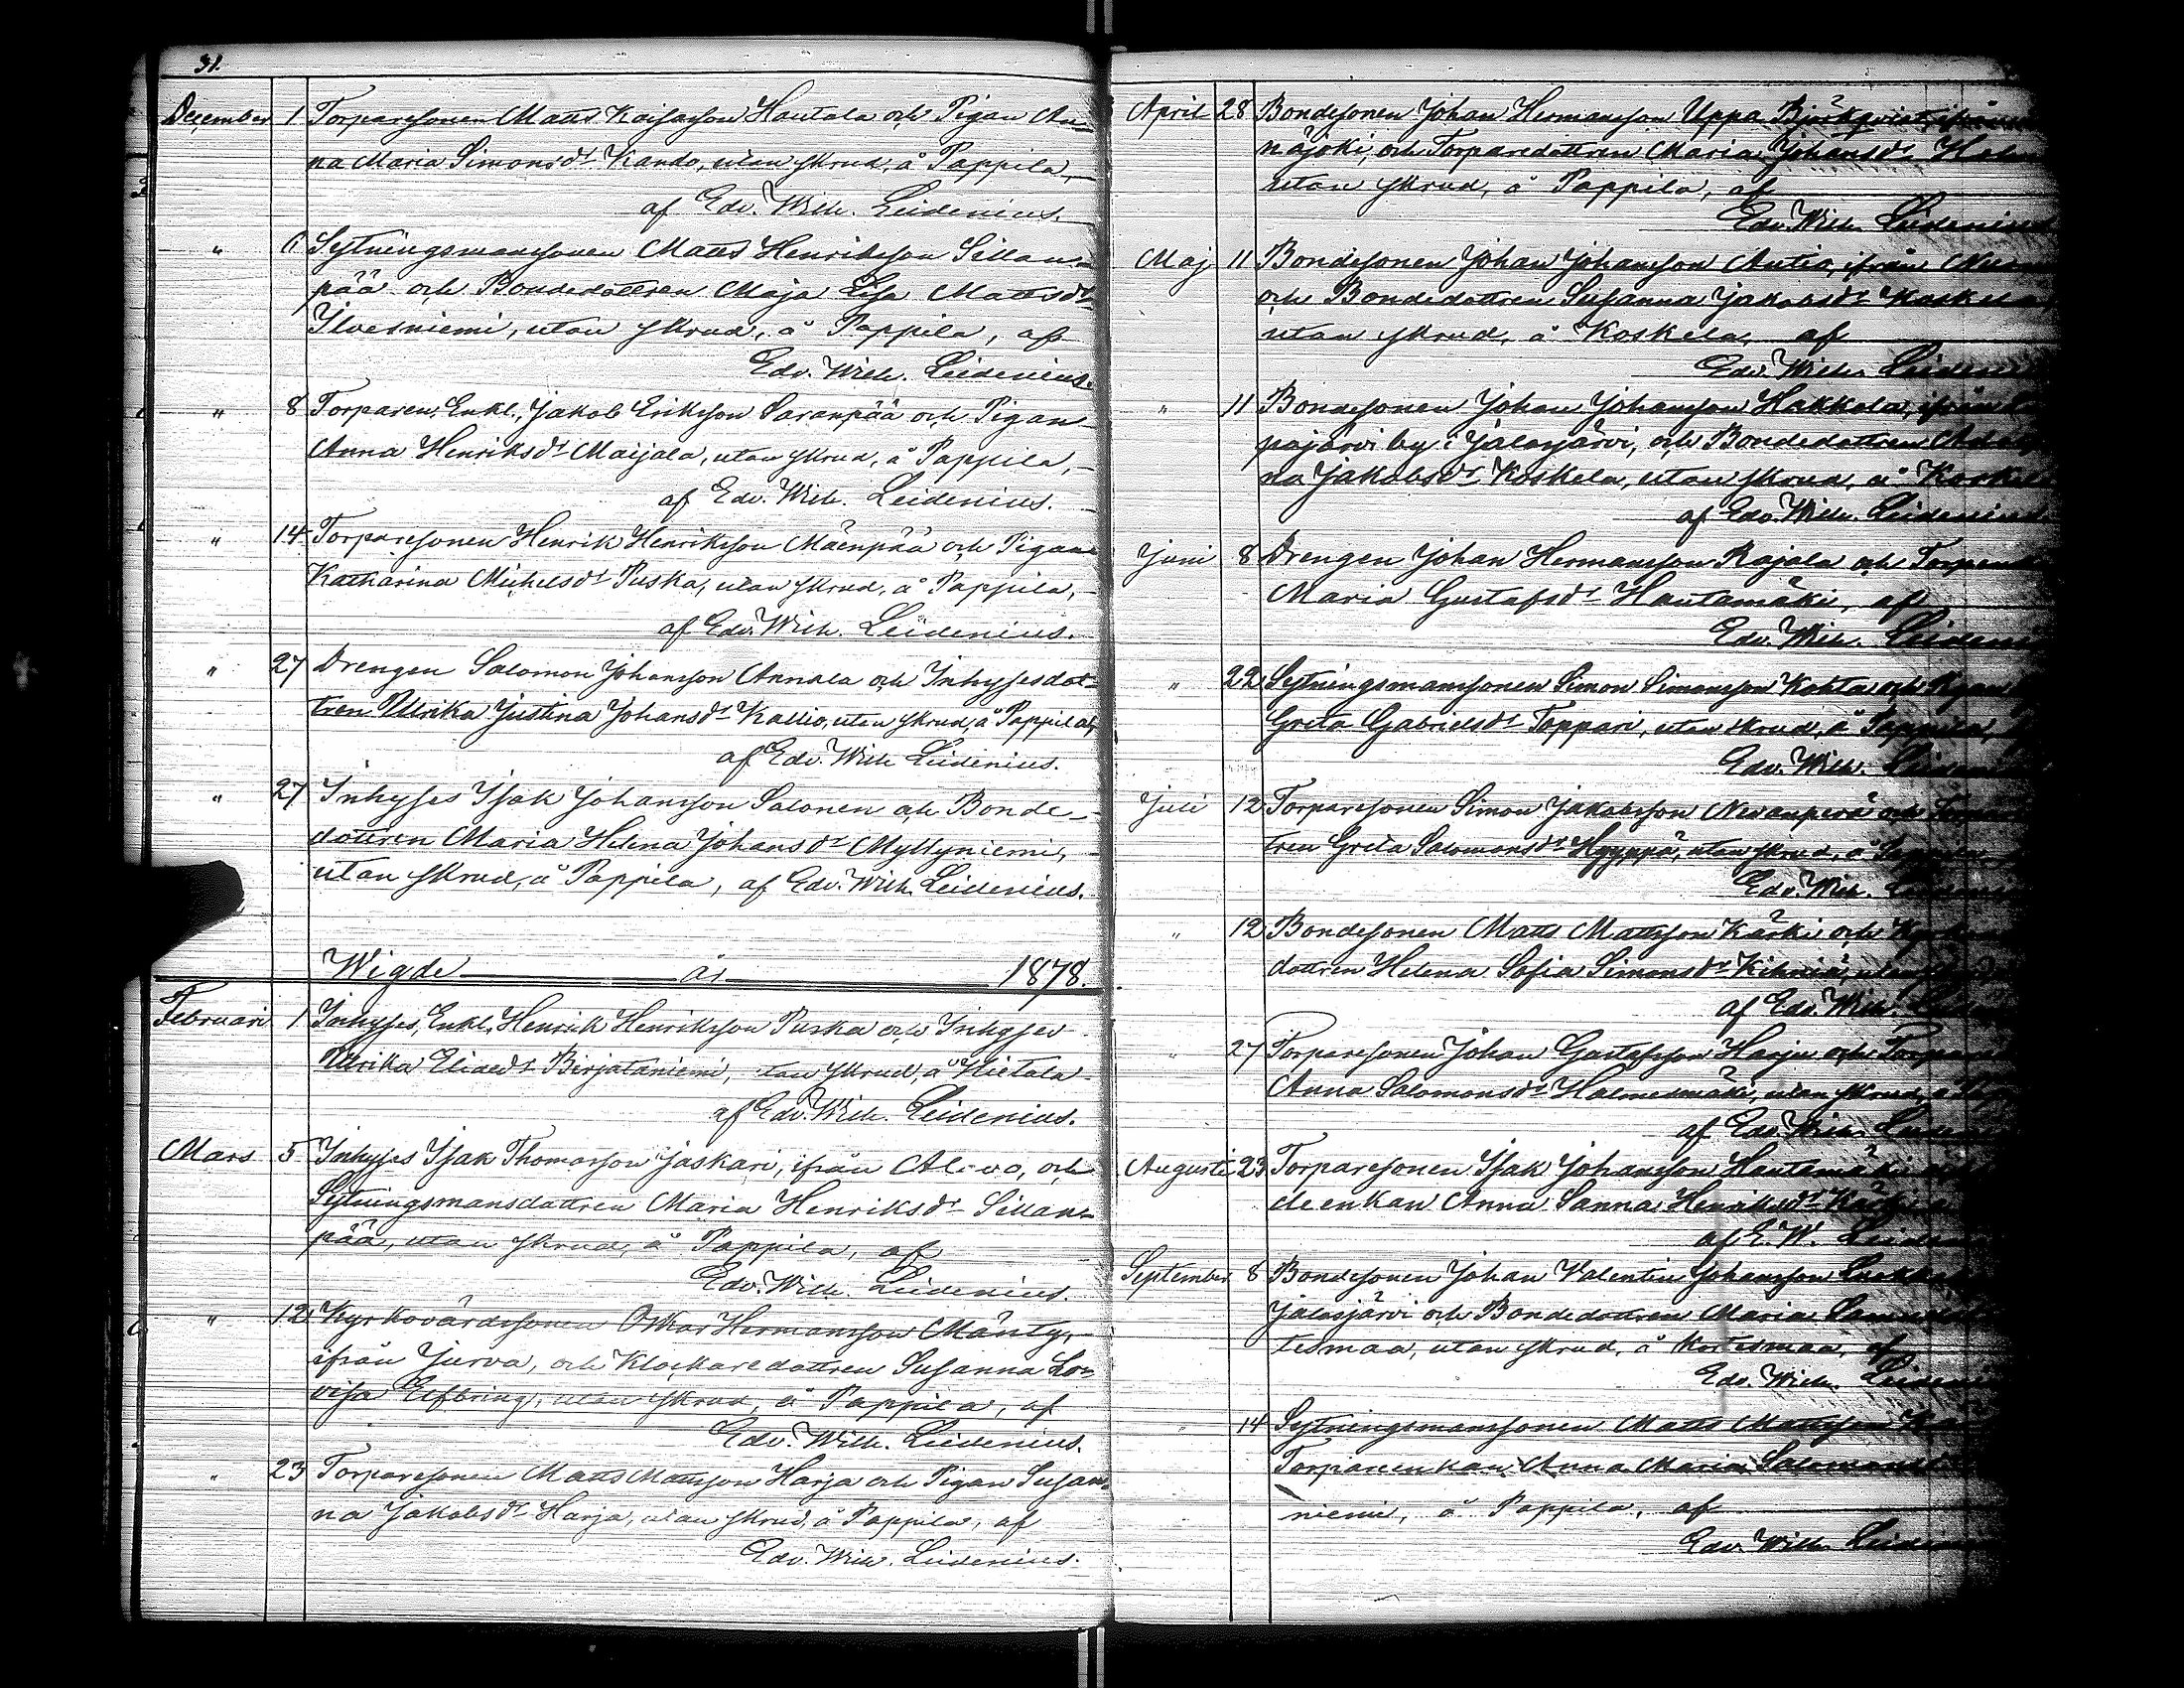 31.
December 1 Torparesonen Matts Kaisasson Hautala och Pigan An-
na Maria Simonsdr Kando, utan skrud, å Pappila,
af Edv. Wilh. Leidenius.
" 6 Sytningsmanssonen Matts Henriksson Sillan-
pää och Bondedottren Maja Lisa Mattsdr
Ilvesniemi, utan skrud, å Pappila, af
Edv. Wilh. Leidenius.
" 8 Torparen, Enkl., Jakob Eriksson Saranpää och Pigan
Anna Henriksdr Maijala, utan skrud, å Pappila,
af Edv. Wilh. Leidenius.
" 14 Torparesonen Henrik Henriksson Mäenpää och Pigan
Katharina Michelsdr Puska, utan skrud, å Pappila,
af Edv. Wilh. Leidenius.
" 27 Drengen Salomon Johansson Annala och Inhysesdot-
tren Ulrika Justina Johansdr Kallio, utan skrud, å Pappila,
af Edv. Wilh Leidenius.
" 27 Inhyses Isak Johansson Salonen och Bonde-
dottren Maria Helena Johansdr Myllyniemi,
utan skrud, å Pappila, af Edv. Wilh. Leidenius.
Wigde år 1878.
Februari 1 Inhyses, Enkl., Henrik Henriksson Puska och Inhyses
Ulrika Eliaedr Birjataniemi, utan skrud, å Hietala
af Edv. Wilh. Leidenius.
Mars 5 Inhyses Isak Thomasson Jaskari, ifrån och
Sytningsmansdottren Maria Henriksdr Sillan-
pää, utan skrud, å Pappila, af
Edv. Wilh. Leidenius.
" 12 Kyrkovärdssonen Oskar Hermansson Mänty,
ifrån Jurva, och Klockaredottren Susanna Lo-
visa Elfbring, utan skrud, å Pappila, af
Edv. Wilh. Leidenius.
" 23 Torparesonen Matts Mattsson Harja och Pigan Susan-
na Jakobsdr Harja, utan skrud, å Pappila, af
Edv. Wilh. Leidenius.
April 28 Bondesonen Johan Hermansson Uppa Björkqvist, ifrån
näjoki, och Torparedottren Maria Johansdr
utan skrud, å Pappila, af
Edv. Wilh. Leidenius
Maj 11 Bondesonen Johan Johansson Antio, ifrån
och Bondedottren Susanna Jakobsdr Koskela
utan skrud, å Koskela, af
Edv. Wilh. Leiden
" 11 Bondesonen Johan Johansson Hakkola, ifrån
pajärvi by i Jalasjärvi, och Bondedottren
na Jakobsdr Koskela, utan skrud, å Koskel
af Edv. Wilh. Leidenius
Juni 8 Drengen Johan Hermansson Rajala och
Maria Gustafsdr Hautamäki, af
Edv. Wilh. Leiden
" 22 Sytningsmanssonen Simon Simonsson Kohta och Pigan
Greta Gabrielsdr Toppari, utan skrud, å Pappila,
Edv. Wilh.
Juli 12 Torparesonen Simon Jakobsson Nevanperä och
tren Greta Salomonsdr Hyyppä, utan skrud, å
Edv. Wilh.
" 12 Bondesonen Matts Mattsson Kärki och
dottren Helena Sofia Simonsdr Kihniä, utan
af Edv. Wilh.
" 27 Torparesonen Johan Gustafsson Harju och
Anna Salomonsdr Holmesmäki, utan skrud, å
af Edv. Wilh.
Augusti 23 Torparesonen Isak Johansson Hautamäki
de enkan Anna Sanna Henriksdr
af E. W. Leiden
September 8 Bondesonen Johan Valentin Johansson
Jalasjärvi och Bondedottren Maria
tesmaa, utan skrud, å Kortesmaa, af
Edv. Wilh. Leideni
" 14 Sytningsmanssonen Matts Mattsson
Torpareenkan Anna Maria
niemi, å Pappila, af
Edv. Wilh. Leiden